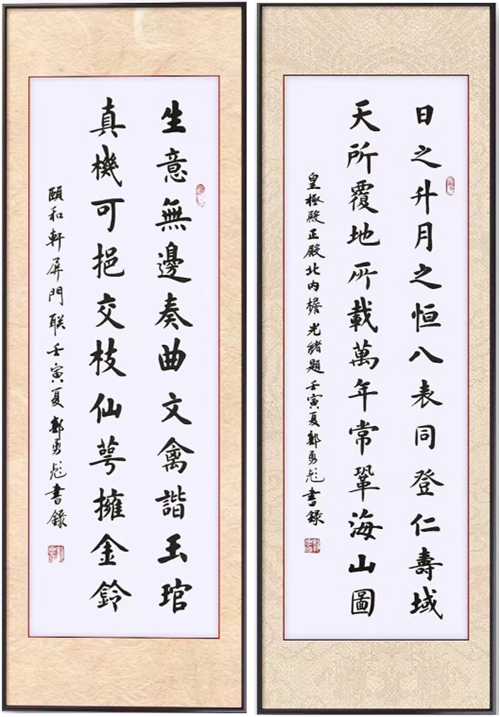 日之升月之恒八表同登仁壽域
天所覆地所載萬年常鞏海山圖
皇極殿正殿北内檐光緒題壬寅夏郭勇彪書錄
生意無邊奏曲文禽諧玉琯
真機可挹交枝仙萼擁金鈴
頤和軒屏門联壬寅夏郭勇彪書錄